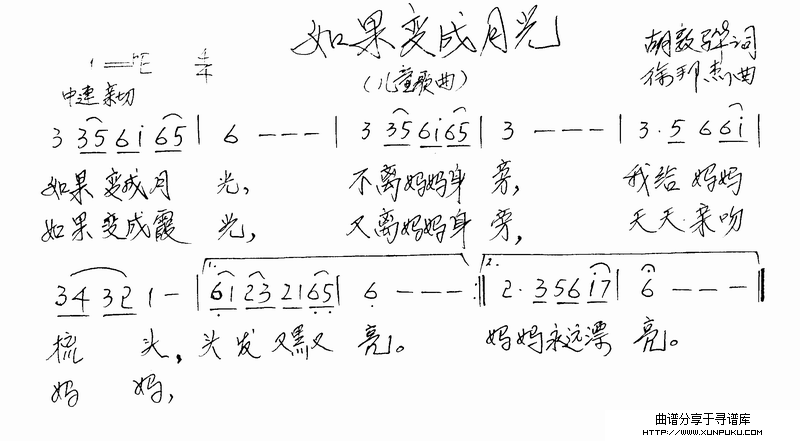 如果变成月光
(儿童歌曲)
胡敦骅词
徐邦杰曲
1=♭E 4/4
中速 亲切
3 35 6i 65 | 6 - - - | 3 35 6i 65 | 3 - - - | 3·5 6 6i |
如果变成月 光, 不离妈妈身 旁, 我给妈妈
如果变成霞 光, 又离妈妈身 旁, 天天亲吻
34 32 1 - | 1. 61 23 21 65 | 6 - - - :|| 2. 2·3 56 i7 | 6 - - - ||
梳 头, 头发又黑又 亮。 妈妈永远漂 亮。
妈 妈,
曲谱分享于寻谱库
HTTP://WWW.XUNPUKU.COM